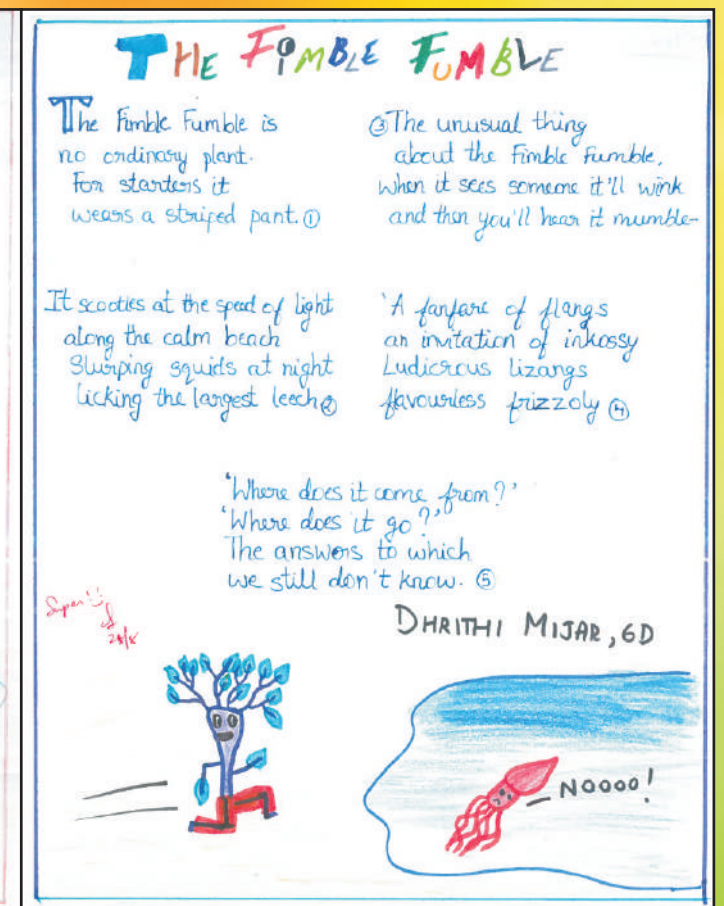 THE FIMBLE FUMBLE
The Fimble Fumble is
no ordinary plant.
For starters it
wears a striped pant. ①
It scooties at the speed of light
along the calm beach
Slurping squids at night
licking the largest leech ②
③ The unusual thing
about the Fimble Fumble,
when it sees someone it'll wink
and then you'll hear it mumble-
'A fanfare of flangs
an invitation of inkossy
Ludicrous lizangs
flavourless frizzoly ④
'Where does it come from?'
'Where does it go?'
The answers to which
we still don't know. ⑤
Super!
28/8
DHRITHI MIJAR, 6D
NOOOO!